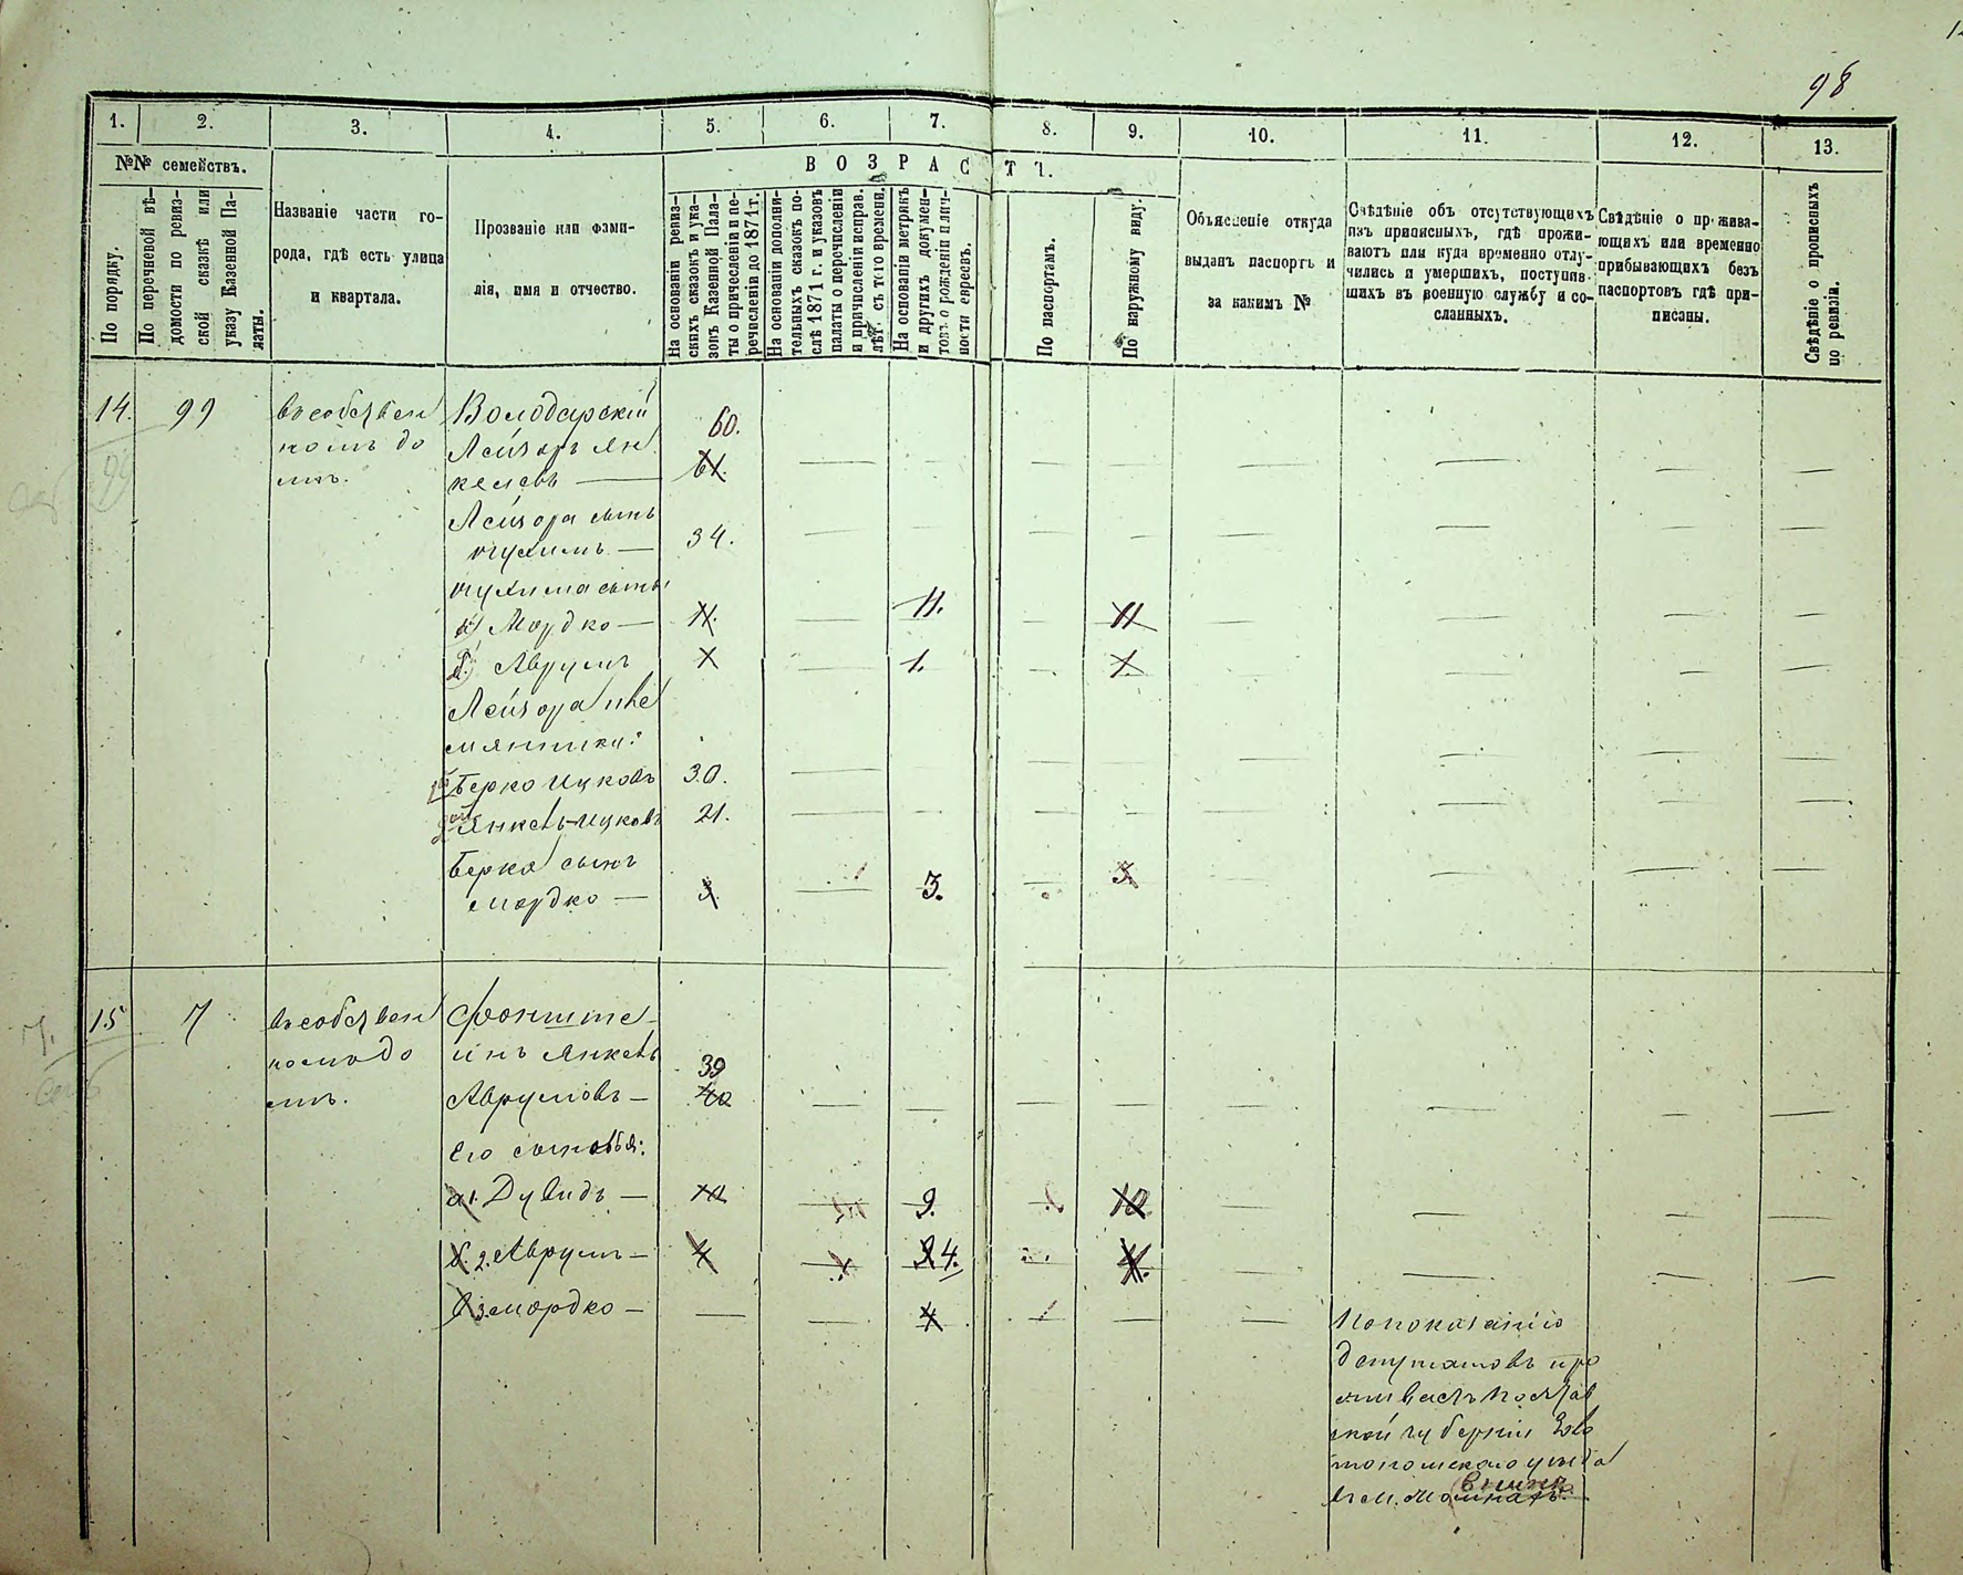 98
1. 2. 3. 4. 5. 6. 7. 8. 9. 10. 11. 12. 13.
№№ семействъ.
ВОЗРАСТЪ.
По порядку.
По перечневой вѣ-
домости по ревиз-
ской сказкѣ или
указу Казенной Па-
латы.
Названіе части го-
рода, гдѣ есть улица
и квартала.
Прозваніе или фами-
лія, имя и отчество.
На основаніи ревиз-
скихъ сказокъ и ука-
зовъ Казенной Пала-
ты о причесленіи и пе-
речисленіи до 1871 г.
На основаніи дополни-
тельныхъ сказокъ по-
слѣ 1871 г. и указовъ
палаты о перечисленіи
и причисленіи исправ.
лѣт. съ того времени.
На основаніи метрикъ
и другихъ докумен-
товъ о рожденіи лич-
ности евреевъ.
По паспортамъ.
По наружному виду.
Объясненіе откуда
выданъ паспортъ и
за какимъ №
Свѣдѣніе объ отсутствующихъ
изъ приписныхъ, гдѣ прожи-
ваютъ или куда временно отлу-
чились и умершихъ, поступив-
шихъ въ военную службу и со-
сланныхъ.
Свѣдѣніе о прожива-
ющихъ или временно
прибывающихъ безъ
паспортовъ гдѣ при-
писаны.
Свѣдѣніе о прописныхъ
по ревизіи.
14. 99
въ собствен
номъ до
мѣ.
Володарскій
Лейзоръ Ян
келевъ — 60. 61.
Лейзора сынъ
Нухимъ — 34.
Нухима сынъ
а) Мордко — 11. 11. 11
б) Аврумъ 1 1. 1.
Лейзора пле
мянники:
Берко Ицковъ 30.
Янкель Ицковъ 21.
Берка сынъ
Мордко — 3. 3. 3
15 7
въ собствен
номъ до
мѣ.
Фонште-
инъ Янкель 39
Аврумовъ — 40
Его сыновья:
а 1. Дувидъ — 10 9. 10.
б. 2. Аврумъ — 4 4. 4.
в 3. Мордко — 4
По показанію
депутатовъ про
живаетъ Полтав
ской губерніи Золо
тоношскаго уѣзда
въ м.